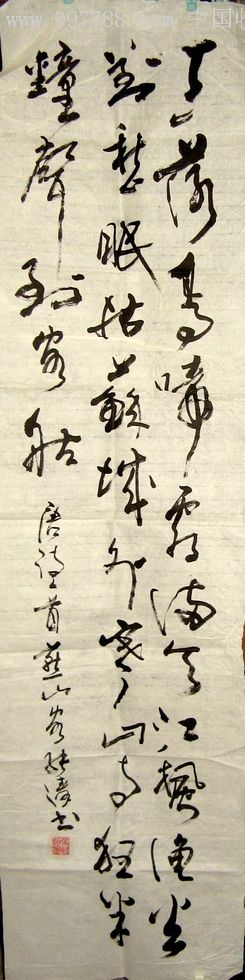 www.997788.com 中国收
月落烏啼霜滿天江楓漁火
對愁眠姑蘇城外寒山寺夜半
鐘聲到客船
唐詩一首燕山客張濤书